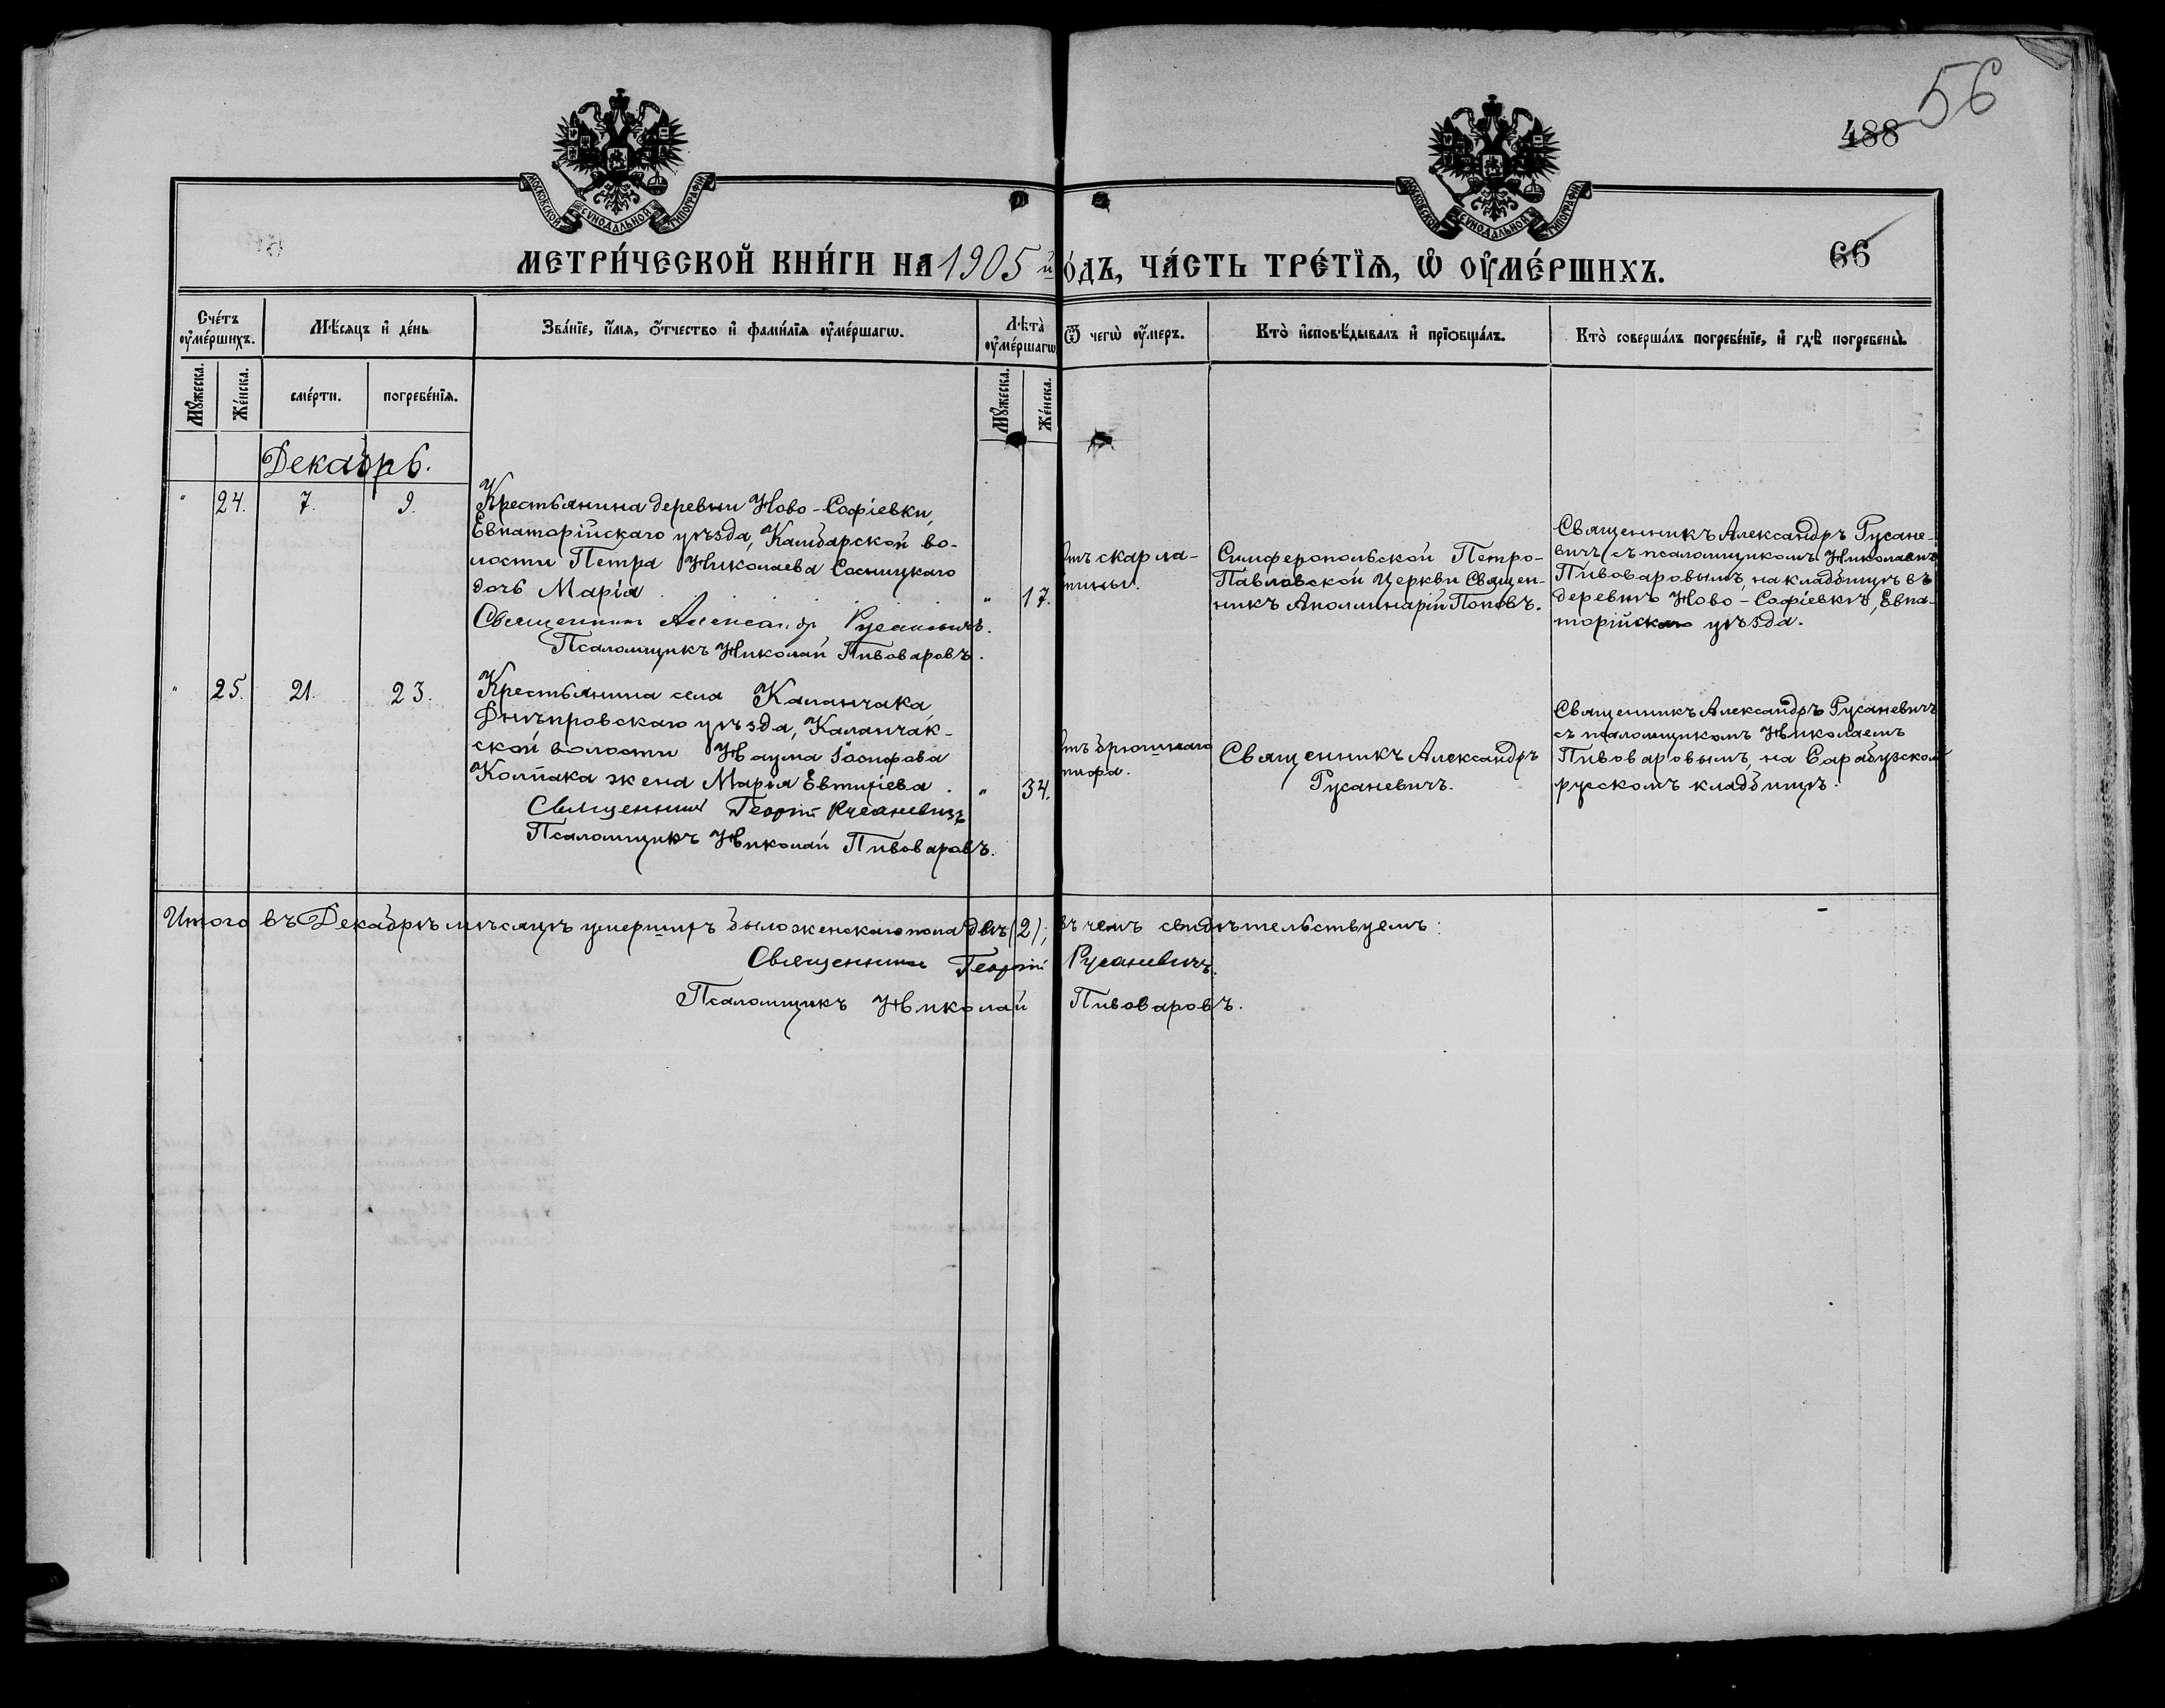 56
488
66
МОСКОВСКОЙ СѴНОДАЛЬНОЙ ТИПОГРАФІИ
МОСКОВСКОЙ СѴНОДАЛЬНОЙ ТИПОГРАФІИ
МЕТРИ́ЧЕСКОЙ КНИ́ГИ НА 1905 й о́дъ, ЧА́СТЬ ТРЕ́ТЇѦ, Ѡ҆ ОУ҆МЕ́РШИХЪ.
Сче́тъ оу҆ме́ршихъ.
Мѣ́сяцъ и҆ де́нь
Зва́нїе, и҆́мя, ѻ҆́тчество и҆ фами́лїя оу҆ме́ршагѡ.
Лѣ́та оу҆ме́ршагѡ
Ѿ чегѡ̀ оу҆́меръ.
Кто̀ и҆сповѣ́дывалъ и҆ прїѡбща́лъ.
Кто̀ соверша́лъ погребе́нїе, и҆ гдѣ̀ погребены̀.
Мꙋ́жеска.
Же́нска.
сме́рти.
погребе́нїя.
Мꙋ́жеска.
Же́нска.
Декабрь.
" 24. 7. 9.
Крестьянина деревни Ново-Софіевки,
Евпаторійскаго уѣзда, Камбарской во-
лости Петра Николаева Сосницкаго
дочь Марія . . . . . " 17.
Священникъ Александр Русаневичъ.
Псаломщикъ Николай Пивоваровъ.
отъ скарла-
тины.
Симферопольской Петро-
Павловской Церкви Священ-
никъ Аполлинарій Поповъ.
Священникъ Александръ Русане-
вичъ съ псаломщикомъ Николаемъ
Пивоваровымъ, на кладбищѣ въ
деревнѣ Ново-Софіевкѣ, Евпа-
торійскаго уѣзда.
" 25. 21. 23.
Крестьянина села Каланчака
Днѣпровскаго уѣзда, Каланчак-
ской волости Наума Іосифова
Колпака жена Марія Евтихіева . " 34.
Священникъ Георгій Русаневичъ
Псаломщикъ Николай Пивоваровъ.
отъ брюшнаго
тифа.
Священникъ Александръ
Русаневичъ.
Священникъ Александръ Русаневичъ
съ псаломщикомъ Николаемъ
Пивоваровымъ, на Сарабузском
русскомъ кладбищѣ.
Итого въ Декабрѣ мѣсяцѣ умершихъ было женскаго пола двѣ (2); въ чемъ свидѣтельствуемъ:
Священникъ Георгій Русаневичъ.
Псаломщикъ Николай Пивоваровъ.